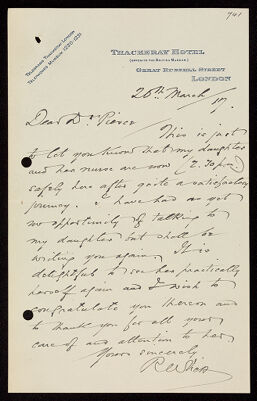 741
TELEGRAMS: THACKERAY LONDON
TELEPHONE: MUSEUM 1230-1231
THACKERAY HOTEL
(OPPOSITE THE BRITISH MUSEUM)
GREAT RUSSELL STREET
LONDON
26th March/17.
Dear Dr Pierce
This is just
to let you know that my daughter
and her nurse are now (2.30 pm)
safely here after quite a satisfactory
journey. I have had as yet
no opportunity of talking to
my daughter but shall be
writing you again. It is
delightful to see her practically
herself again and I wish to
congratulate you thereon and
to thank you for all your
care of and attention to her
Yours sincerely